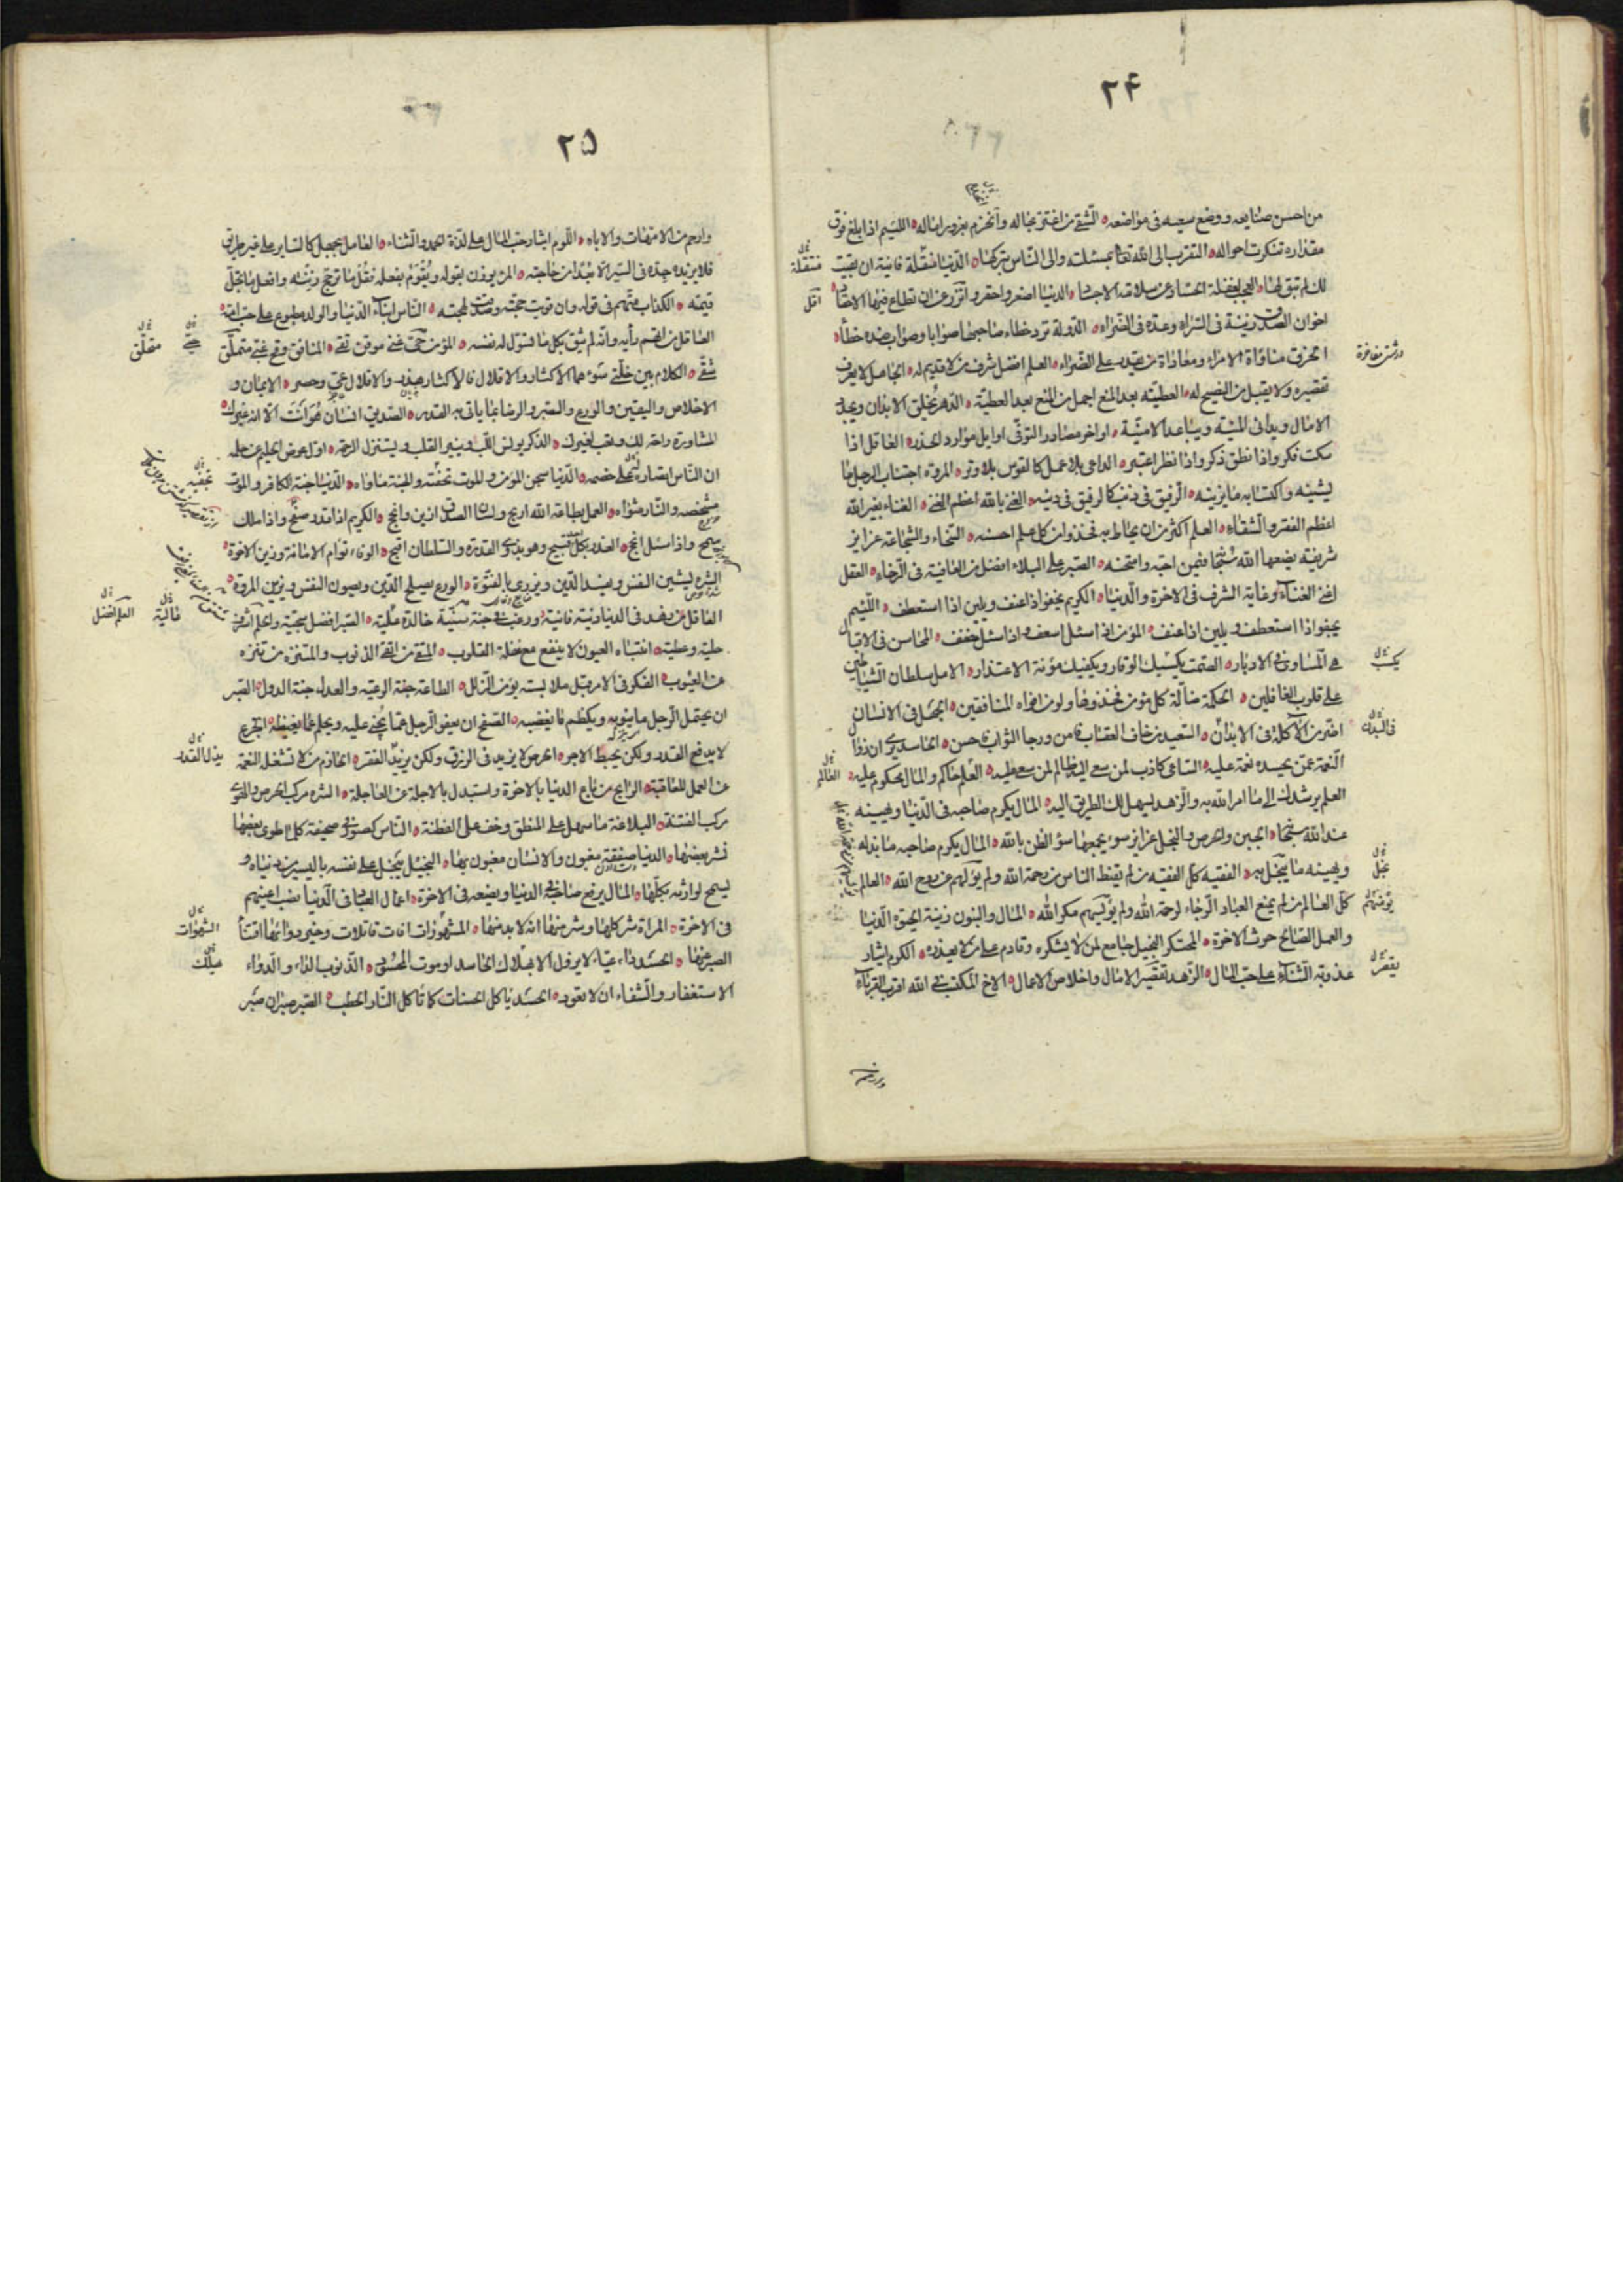 ٢۴
من احسن صنايعه ووضع سعيه فى مواضعه الشقى من اغتر بحاله وانخدع بغرور اماله اللئيم اذا بلغ فوق
مقداره تنكرت احواله التقرب الى الله تعالى بمسئلته والى الناس بتركها الدنيا منتقلة فانية ان بقيت
لك لم تبق لها العجب لغفلة الحساد عن سلامة الاجساد الدنيا اصغر واحقر وانزر من ان تطاع فيها الاحقاد
اخوان الصدق زينة فى السراء وعدة فى الضراء الدولة ترد خطاء صاحبها صوابا وصواب ضده خطأ
الخرق مناواة الامراء ومعاداة من يقدر على الضراء العلم افضل شرف من لا قديم له الجاهل لا يعرف
تقصيره ولا يقبل من النصيح له العطية بعد المنع اجمل من المنع بعد العطية الدهر يخلق الابدان ويجدد
الامال ويدنى المنية ويباعد الامنية اواخر مصادر التوقى اوايل موارد الحذر العاقل اذا
سكت فكر واذا نطق ذكر واذا نظر اعتبر الداعى بلا عمل كالقوس بلا وتر المروة اجتناب الرجل ما
يشينه واكتسابه ما يزينه الرفيق فى دنياه كالرفيق فى دينه الغنى بالله اعظم الغنى الغناء بغير الله
اعظم الفقر والشقاء العلم اكثر من ان يحاط به فخذوا من كل علم احسنه السخاء والشجاعة غرايز
شريفة يضعها الله سبحانه فيمن احبه وامتحنه الصبر على البلاء افضل من العافية فى الرخاء العقل
اغنى الغناء وغاية الشرف فى الاخرة والدنيا الكريم يجفو اذا عنف ويلين اذا استعطف اللئيم
يجفو اذا استعطف ويلين اذا عنف المؤمن اذا سئل اسعف واذا سئل خفف المحاسن فى الاقبال
هى المساوى فى الادبار الصمت يكسبك الوقار ويكفيك مؤنة الاعتذار الامل سلطان الشياطين
على قلوب الغافلين الحكمة ضالة كل مؤمن فخذوها ولو من افواه المنافقين الجهل فى الانسان
اضر من الاكلة فى الابدان السعيد من خاف العقاب فامن ورجا الثواب فاحسن الحاسد يرى ان زوال
النعمة عمن يحسده نعمة عليه الساعى كاذب لمن سعى اليه ظالم لمن سعى عليه العلم حاكم والمال محكوم عليه
العلم يرشدك الى ما امرك الله به والزهد يسهل لك الطريق اليه المال يكرم صاحبه فى الدنيا ويهينه
عند الله سبحانه الجبن والحرص والبخل غرايز سوء يجمعها سؤ الظن بالله المال يكرم صاحبه ما بذله
ويهينه ما بخل به الفقيه كل الفقيه من لم يقنط الناس من رحمة الله ولم يؤيسهم من روح الله العالم
كل العالم من لم يمنع العباد الرجاء لرحمة الله ولم يؤمنهم مكر الله المال والبنون زينة الحيوة الدنيا
والعمل الصالح حرث الاخرة المحتكر البخيل جامع لمن لا يشكره وقادم على من لا يعذره الكرم ايثار
عذوبة الثناء على حب المال الزهد تقصير الامال واخلاص الاعمال الاخ المكتسب فى الله اقرب القرباء
منتقلة
اقل
يكسب
فى البدن
العالم
بخل
يؤمنهم
يقصر
٢۵
وارحم من الامهات والاباء اللوم ايثار حب المال على لذة الحمد والثناء العامل بجهل كالساير على غير طريق
فلا يزيده جده فى السير الا بعدا من حاجته المرء يوزن بقوله ويقوم بفعله فقل ما ترجح زنته وافعل ما تجل
قيمته الكذاب متهم فى قوله وان قويت حجته وصدقت لهجته الناس ابناء الدنيا والولد مطبوع على حب امه
العاقل من اتهم رأيه ولم يثق بكل ما تسول له نفسه المؤمن حيى غنى موقن تقى المنافق وقح غبى متملق
شقى الكلام بين خلتى سوء هما الاكثار والاقلال فالاكثار هذر والاقلال عى وحصر الايمان و
الاخلاص واليقين والورع والصبر والرضا بما ياتى به القدر الصديق انسان هو انت الا انه غيرك
المشاورة راحة لك وتعب لغيرك الذكر يونس اللب وينير القلب ويستنزل الرحمة اول عوض الحليم عن حلمه
ان الناس انصاره على خصمه الدنيا سجن المؤمن والموت تحفته والجنة ماواه الدنيا جنة الكافر والموت
مشخصه والنار مثواه العمل بطاعة الله اربح ولسان الصدق ازين وانجح الكريم اذا قدر صفح واذا ملك
سمح واذا سئل انجح الغدر بكل احد قبيح وهو بذوى القدرة والسلطان اقبح الوفاء توام الامانة وزين الاخوة
الشره يشين النفس ويفسد الدين ويزرى بالفتوة الورع يصلح الدين ويصون النفس ويزين المروة
العاقل من زهد فى الدنيا دنية فانية ورغب فى جنة سنية خالدة علية الصبر افضل سجية والعلم اشرف
حلية وعطية انتباه العيون لا ينفع مع غفلة القلوب المتقى من اتقى الذنوب والمتنزه من تنزه
عن العيوب الفكر فى الامر قبل ملابسته يؤمن الزلل الطاعة جنة الرعية والعدل جنة الدول الصبر
ان يحتمل الرجل ما ينوبه ويكظم ما يغضبه الصفح ان يعفو الرجل عما يجنى عليه ويحلم عما يغيظه الجزع
لا يدفع القدر ولكن يحبط الاجر الحرص لا يزيد فى الرزق ولكن يذل القدر الحازم من لا تشغله النعمة
عن العمل للعاقبة الرابح من باع الدنيا بالاخرة واستبدل بالاجلة عن العاجلة الشره مركب الحرص والهوى
مركب الفتنة البلاغة ما سهل على المنطق وخف على الفطنة الناس كصور فى صحيفة كلما طوى بعضها
نشر بعضها الدنيا صفقة مغبون والانسان مغبون بها البخيل يبخل على نفسه باليسير من دنياه و
يسمح لوارثه بكلها المال يرفع صاحبه فى الدنيا ويضعه فى الاخرة اعمال العباد فى الدنيا نصب اعينهم
فى الاخرة المراة شر كلها وشر منها انه لا بد منها الشهوات افات قاتلات وخير دوائها اقتناء
الصبر عنها الحسد داء عياء لا يزول الا بهلاك الحاسد او موت المحسود الذنوب الداء والدواء
الاستغفار والشفاء ان لا تعود الحسد ياكل الحسنات كما تاكل النار الحطب الصبر صبران صبر
الشهوات
العلم افضل
عالية